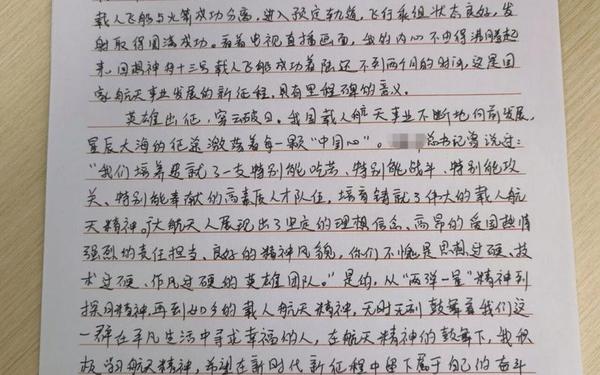 载人飞船与火箭成功分离,进入预定轨道,飞行乘组状态良好,发
射取得圆满成功。看着电视直播画面,我的内心不由得沸腾起
来。因据神舟十三号载人飞船成功着陆还不到两个月的时间,这是国
家航天事业发展的新征程,具有里程碑的意义。
英雄出征,穿云破日。我国载人航天事业不断地向前发展,
星辰大海的征途激荡着每一颗“中国心”。总书记曾说过:
“我们培养造就了一支特别能吃苦、特别能战斗、特别能攻
关、特别能奉献的高素质人才队伍,培育铸就了伟大的载人航
天精神。广大航天人展现出了坚定的理想信念、高昂的爱国热情
强烈的责任担当、良好的精神风貌,你们不愧是思想过硬、技
术过硬、作风过硬的英雄团队。”是的,从“两弹一星”精神到
探月精神,再到如今的载人航天精神,无时无刻鼓舞着我们这
一群在平凡生活中寻求幸福的人,在航天精神的鼓舞下,我积
极学习航天精神,希望在新时代新征程中留下属于自己的奋斗